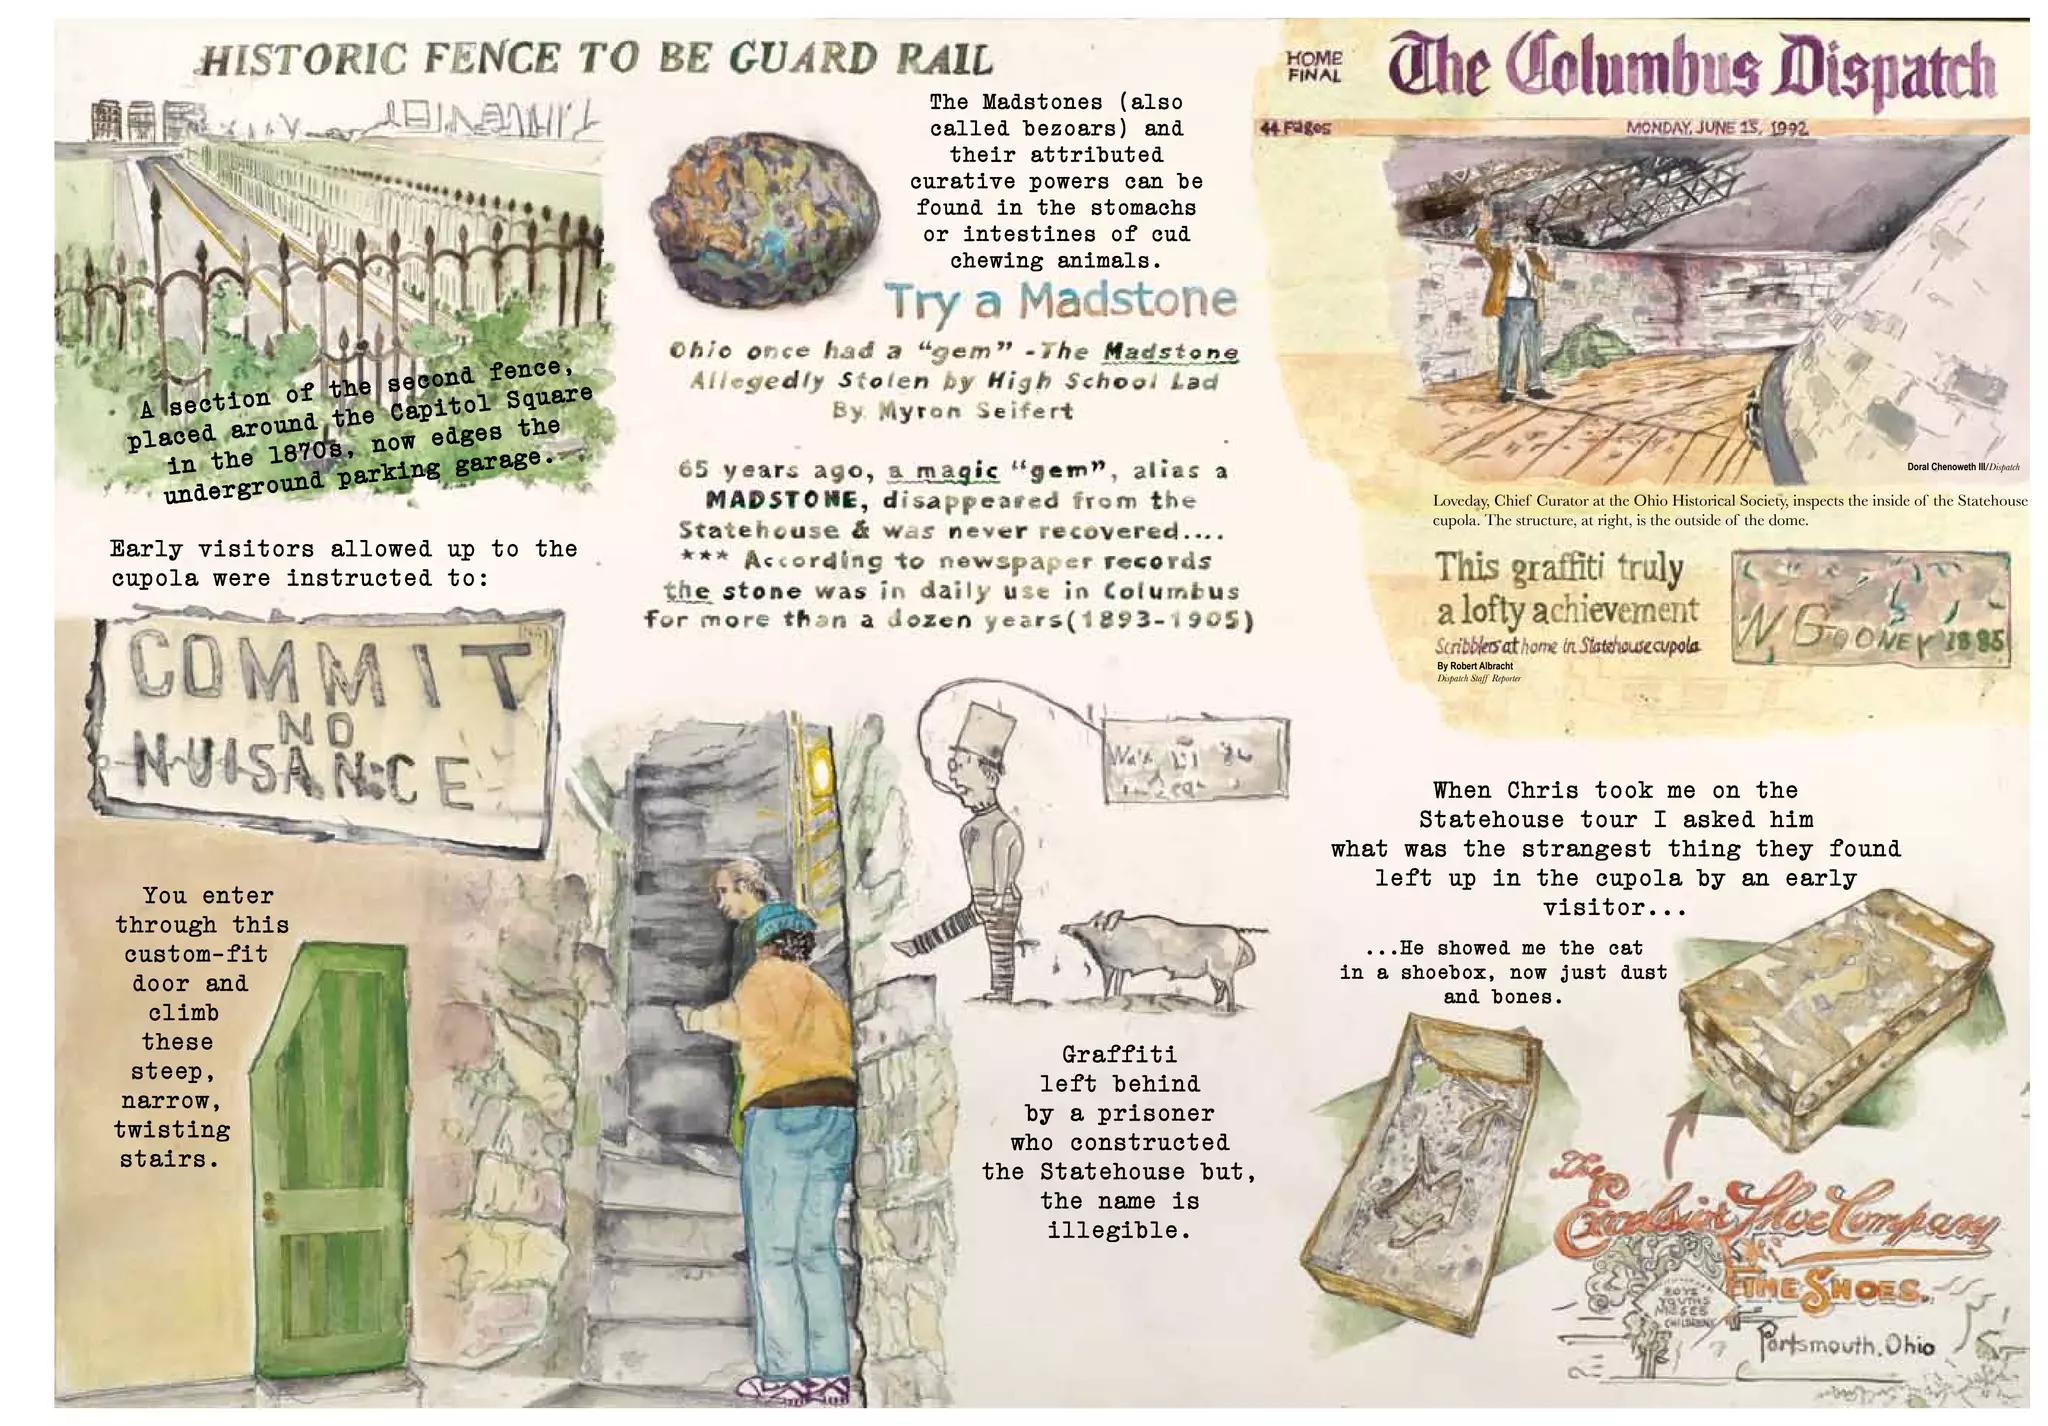 HISTORIC FENCE TO BE GUARD RAIL
A section of the second fence,
placed around the Capitol Square
in the 1870s, now edges the
underground parking garage.
Early visitors allowed up to the
cupola were instructed to:
COMMIT
NO
NUISANCE
You enter
through this
custom-fit
door and
climb
these
steep,
narrow,
twisting
stairs.
The Madstones (also
called bezoars) and
their attributed
curative powers can be
found in the stomachs
or intestines of cud
chewing animals.
Try a Madstone
Ohio once had a "gem" -The Madstone
Allegedly Stolen by High School Lad
By Myron Seifert
65 years ago, a magic "gem", alias a
MADSTONE, disappeared from the
Statehouse & was never recovered....
*** According to newspaper records
the stone was in daily use in Columbus
for more than a dozen years(1893-1905)
Graffiti
left behind
by a prisoner
who constructed
the Statehouse but,
the name is
illegible.
HOME
FINAL
The Columbus Dispatch
44 Pages
MONDAY, JUNE 15, 1992
Doral Chenoweth III/Dispatch
Loveday, Chief Curator at the Ohio Historical Society, inspects the inside of the Statehouse
cupola. The structure, at right, is the outside of the dome.
This graffiti truly
a lofty achievement
Scribblers at home in Statehouse cupola
By Robert Albracht
Dispatch Staff Reporter
W GOONEY 1885
When Chris took me on the
Statehouse tour I asked him
what was the strangest thing they found
left up in the cupola by an early
visitor...
...He showed me the cat
in a shoebox, now just dust
and bones.
The
Excelsior Shoe Company
FINE SHOES.
BOYS
YOUTHS
MISSES
CHILDRENS
Portsmouth, Ohio